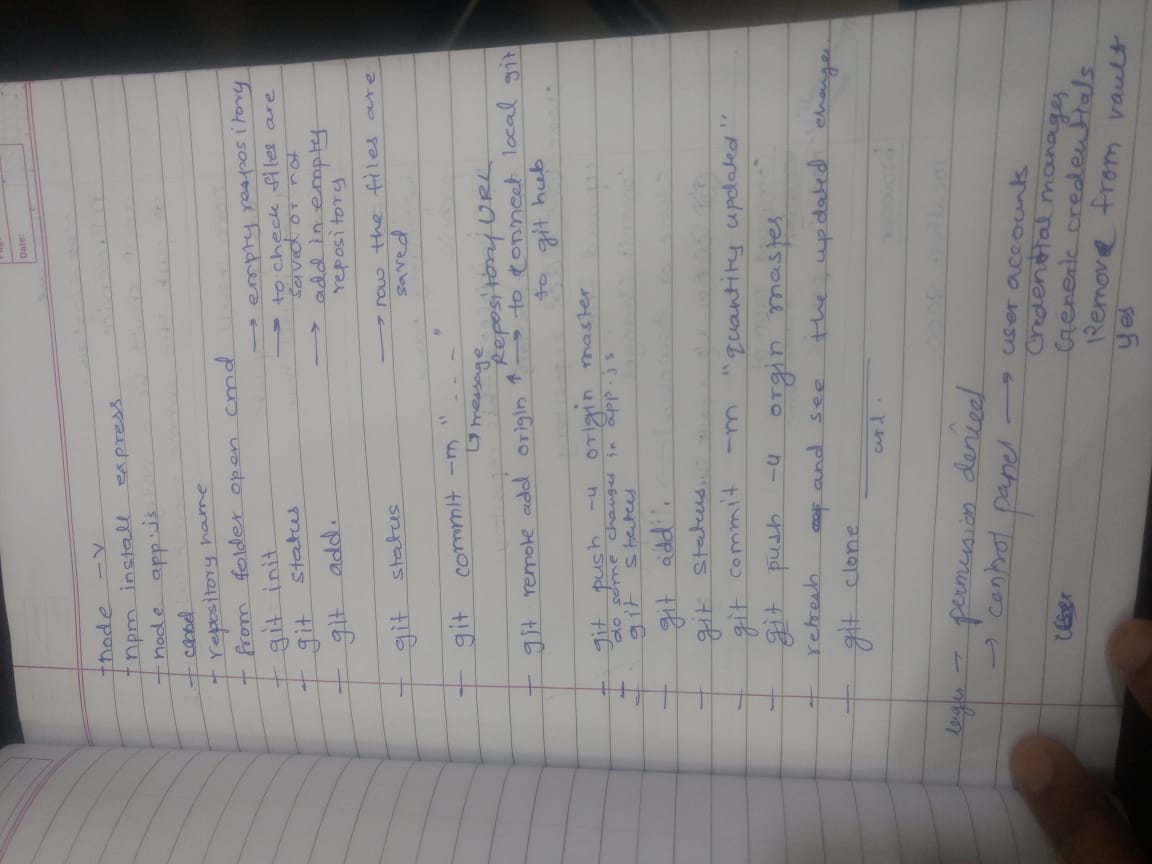 Date:
- node -v
- npm install express
- node app.js
- repository name
- from folder open cmd
- git init → empty respository
- git status → to check files are saved or not
- git add. → add in empty repository
- git status → now the files are saved
- git commit -m " - - - "
↳ message
Repository URL
- git remote add origin ↑ → to connect local git to git hub
- git push -u origin master
- do some changes in app.js
- git status
- git add .
- git status
- git commit -m "quantity updated"
- git push -u orgin master
- refresh and see the updated changes
- git clone ________
url.
→ permission denied
→ control panel → user accounts
Credential manager
Generic credentials
Remove from vault
yes